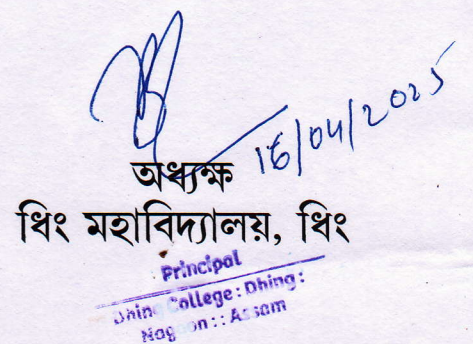 16/04/2025
অধ্যক্ষ
ধিং মহাবিদ্যালয়, ধিং
Principal
Dhing College : Dhing :
Nagaon : : Assam